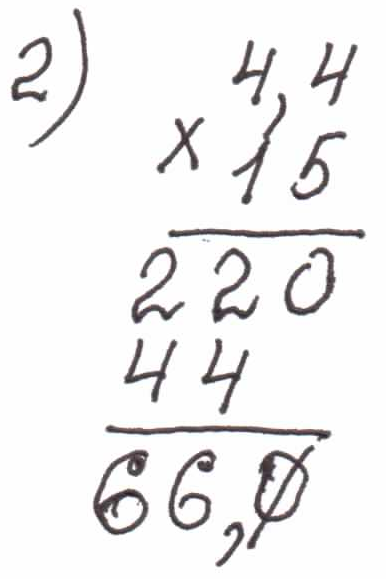 2) 4,4
× 15
220
44
66,0